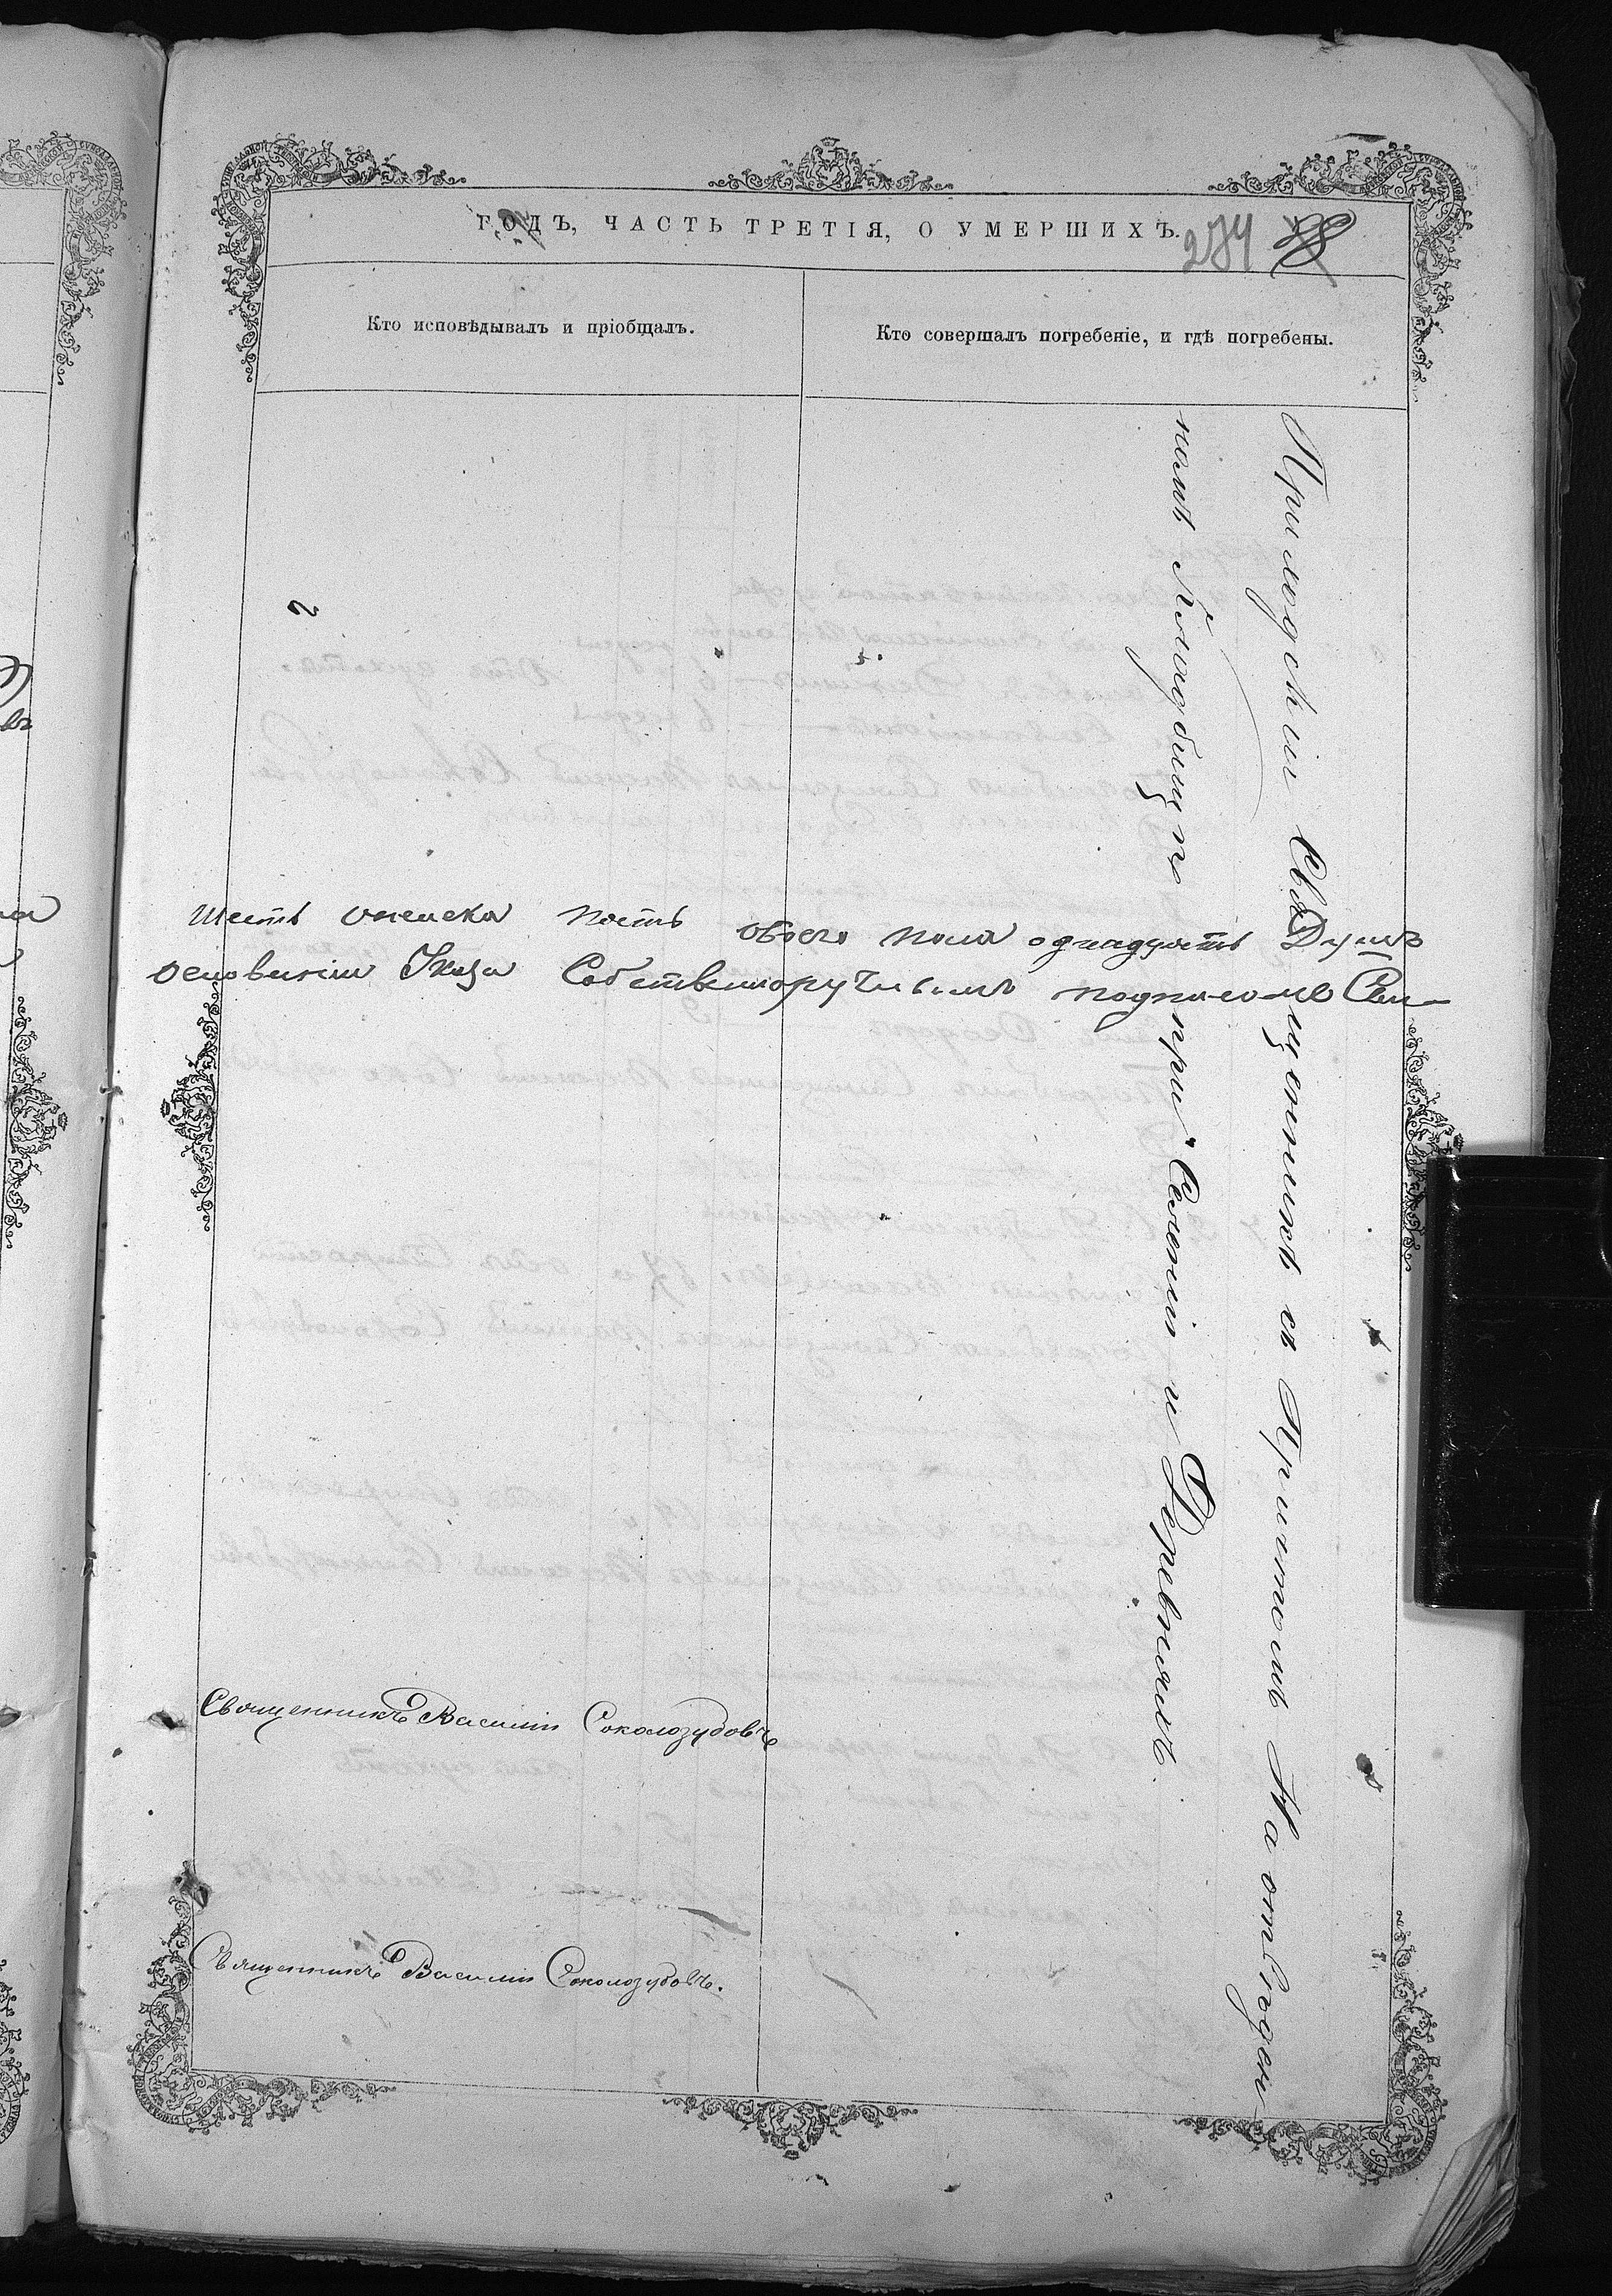 ГОДЪ, ЧАСТЬ ТРЕТІЯ, О УМЕРШИХЪ.
274 28
Кто исповѣдывалъ и пріобщалъ.
Кто совершалъ погребеніе, и гдѣ погребены.
Приходскій Священникъ съ Причтомъ На отведен
номъ Кладбищѣ при Селеніи и Деревняхъ.
шесть женска пять обоего пола одинадцать Душъ
основаніи Указа Собственноручнымъ подписомъ Сви-
Священникъ Василій Соколозубовъ
Священникъ Василій Соколозубовъ.